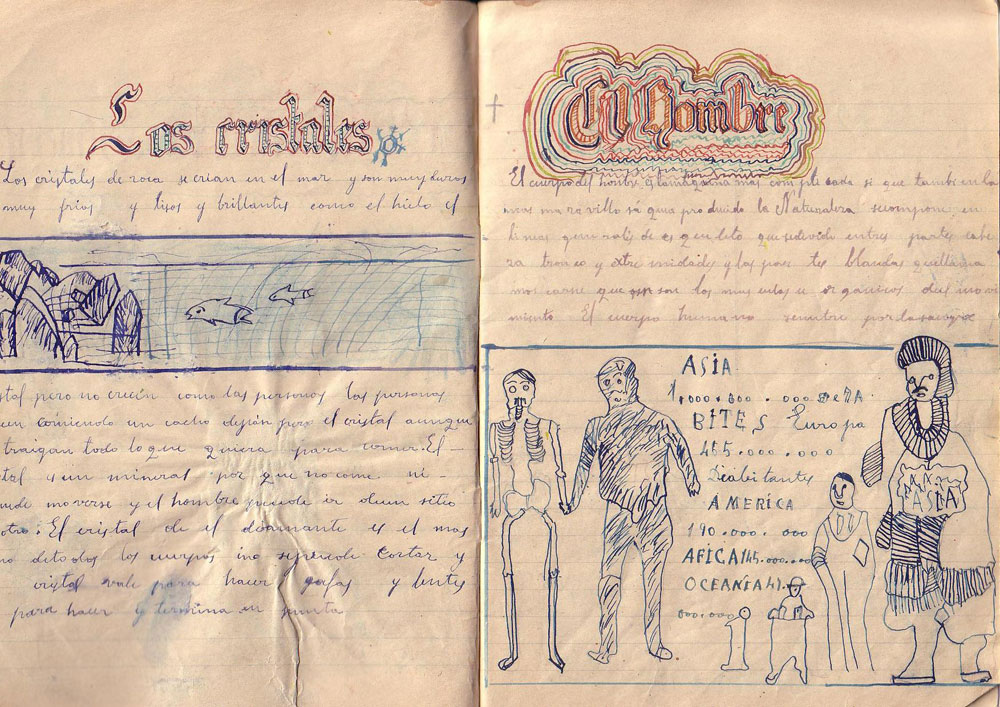 Los cristales
Los cristales de roca se crian en el mar y son muy duros
muy frios y lisos y brillantes como el hielo el
stal pero no crecen como las personas las personas
cen comiendo un cacho dejian pero el cristal aunque
traigan todo lo que quiera para comer. El
tal es un mineral por que no come ni
uede moverse y el hombre puede ir de un sitio
otro. El cristal de el diamante es el mas
ro de todos los cuerpos no se puede cortar y
cristal vale para hacer gafas y lentes
para hacer y termina en punta
El Hombre
El cuerpo del hombre es la maquina mas complicada si que tambien la
mas maravillosa que a producido la Naturaleza se compone en
lineas generales de esqueleto que se divide en tres partes cabe
za tronco y extremidades y las partes blandas que llama
mos carne que son los musculos u organicos del movi
miento El cuerpo humano se nutre por la sangre
ASIA
1.000.000.000 DE HA
BITES Europa
455.000.000
De abitantes
AMERICA
190.000.000
AFICA 145.000.00
OCEANIA 41.
000.000
ASIA